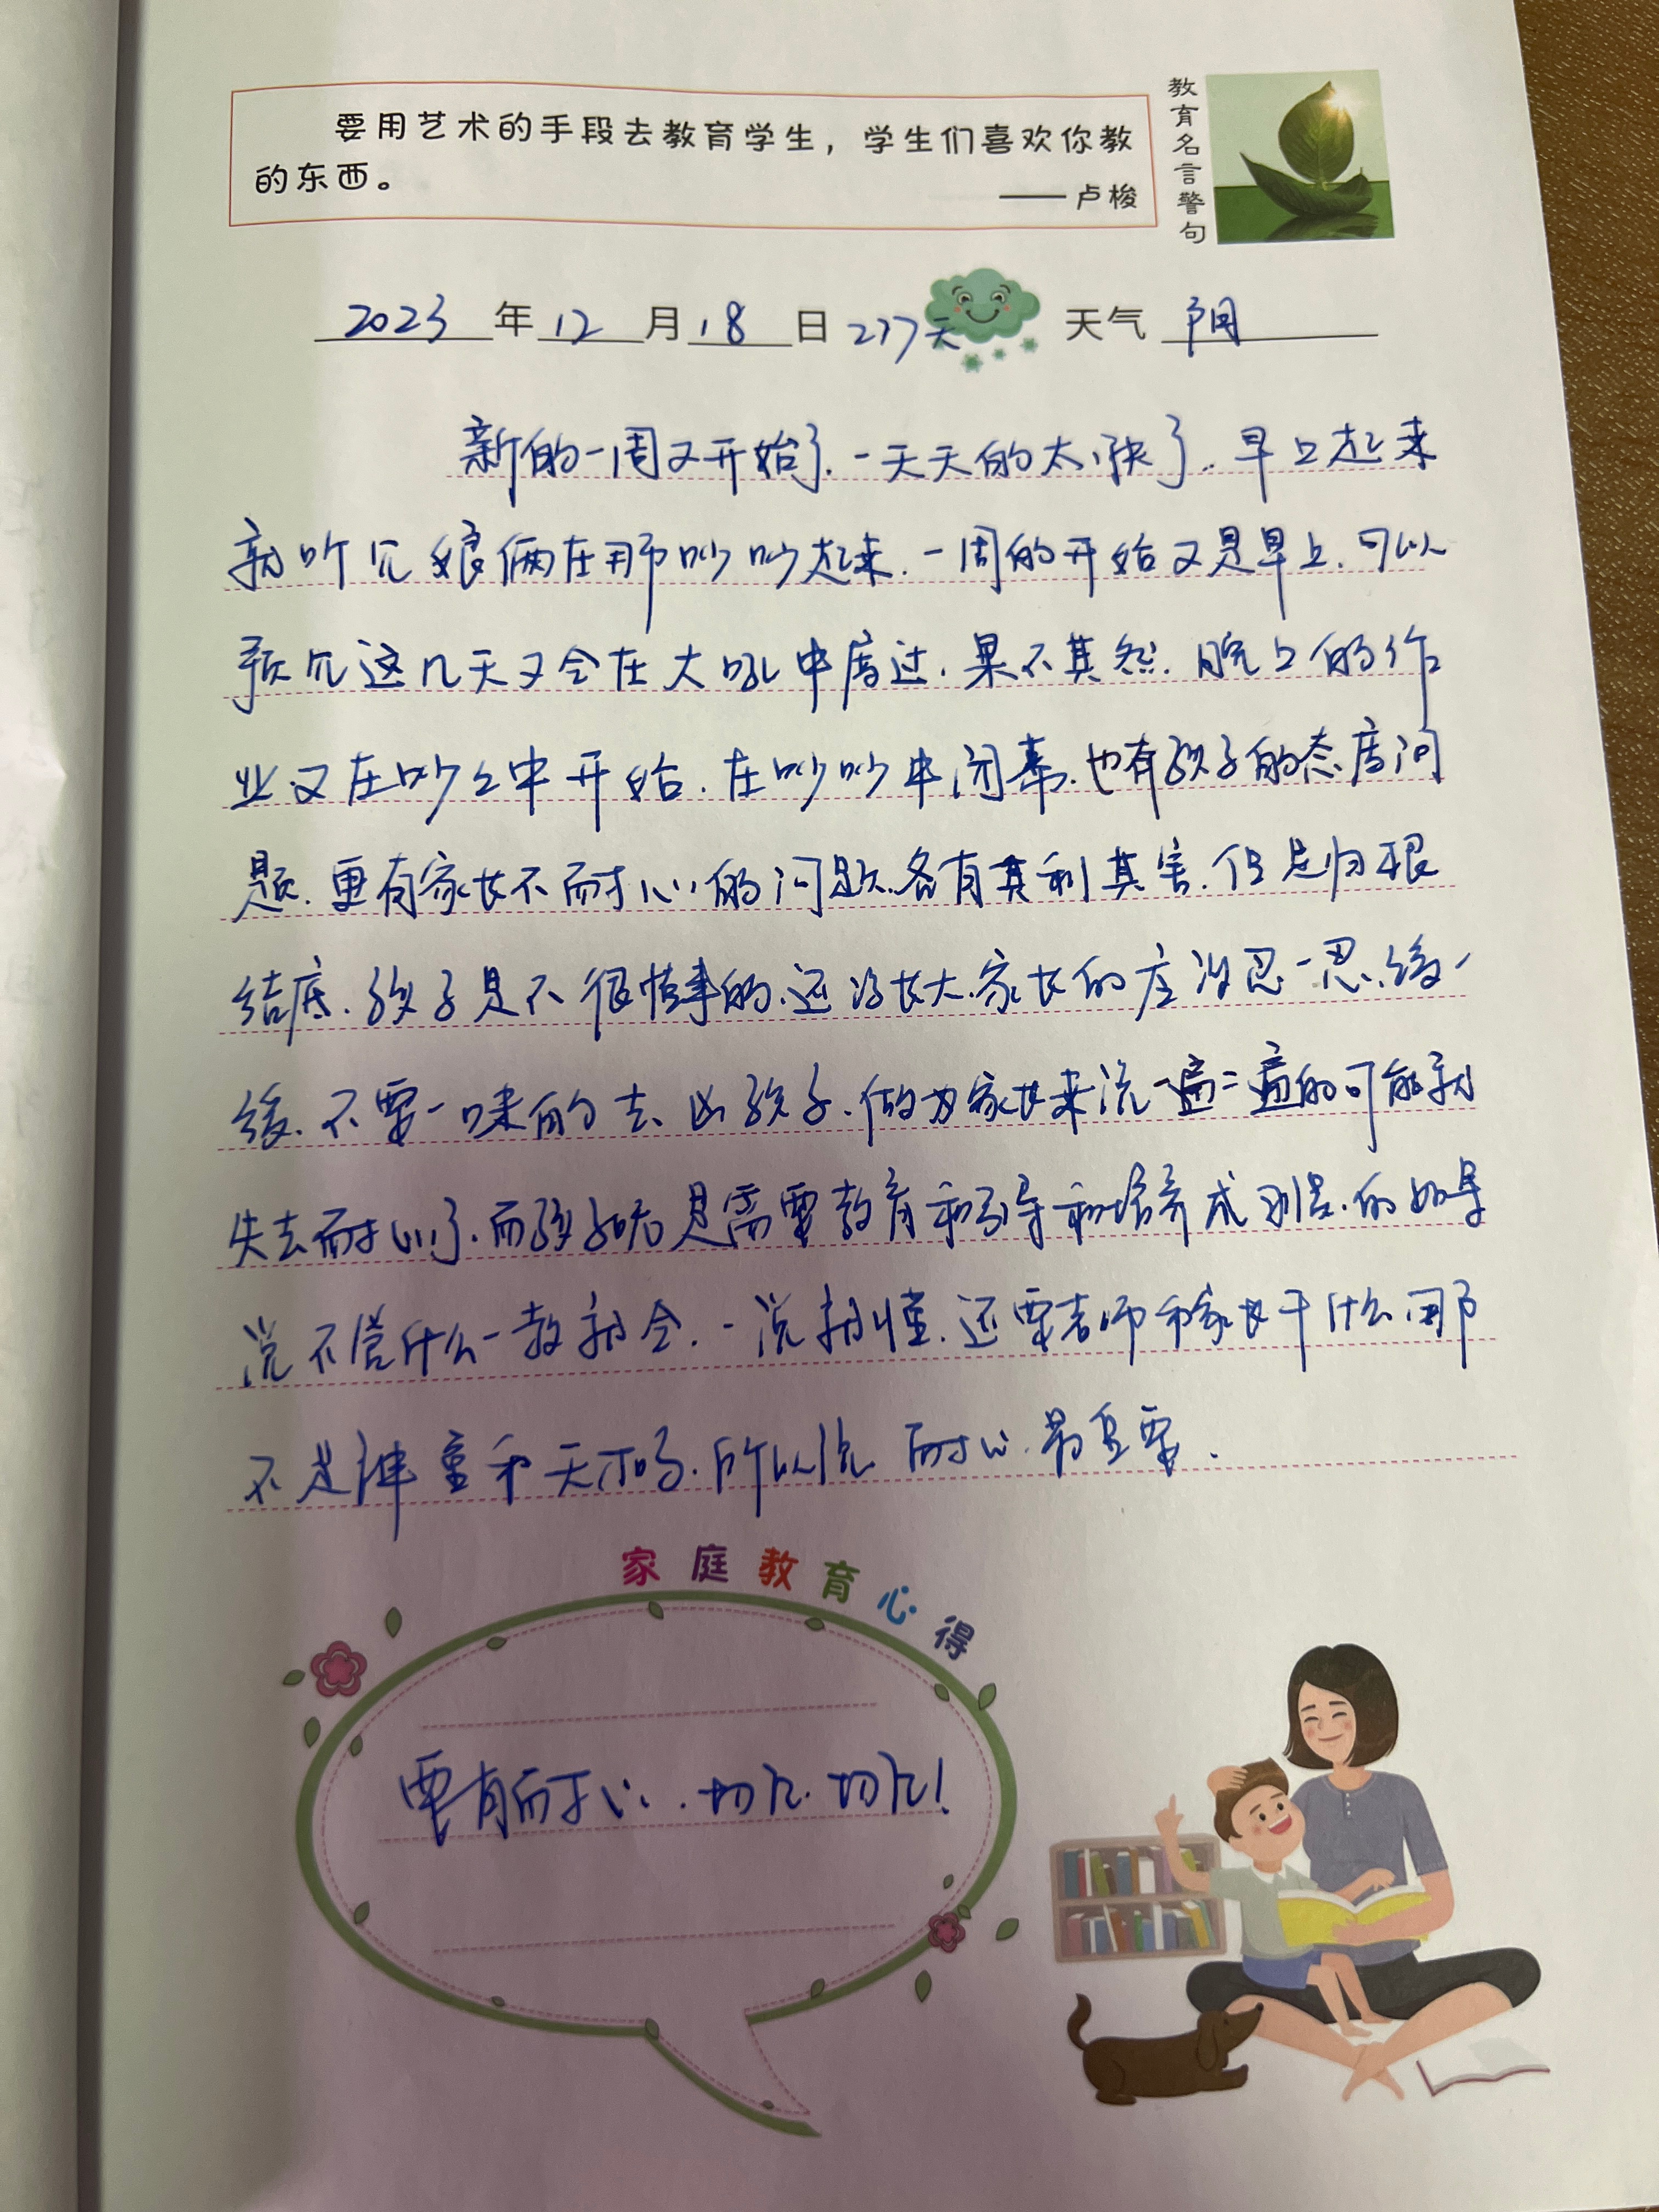 要用艺术的手段去教育学生，学生们喜欢你教
的东西。
——卢梭
教育名言警句
2023年12月18日 277天 天气 阴
新的一周又开始了.一天天的太快了.早上起来
就听见娘俩在那吵吵起来.一周的开始又是早上.可以
预见这几天又会在大吼中度过.果不其然.晚上的作
业又在吵吵中开始.在吵吵中闭幕.也有孩子的态度问
题.更有家长不耐心的问题.各有其利其害.但是归根
结底.孩子是不很懂事的.还没长大.家长的应该忍一忍.缓一
缓.不要一味的去凶孩子.做为家长来说一遍二遍的可能就
失去耐心了.而孩子呢是需要教育和引导和培养成习惯.的如果
说不管什么一教就会.一说就懂.还要老师和家长干什么用那
不是神童和天才吗.所以说耐心.最重要.
家庭教育心得
要有耐心.切记.切记!